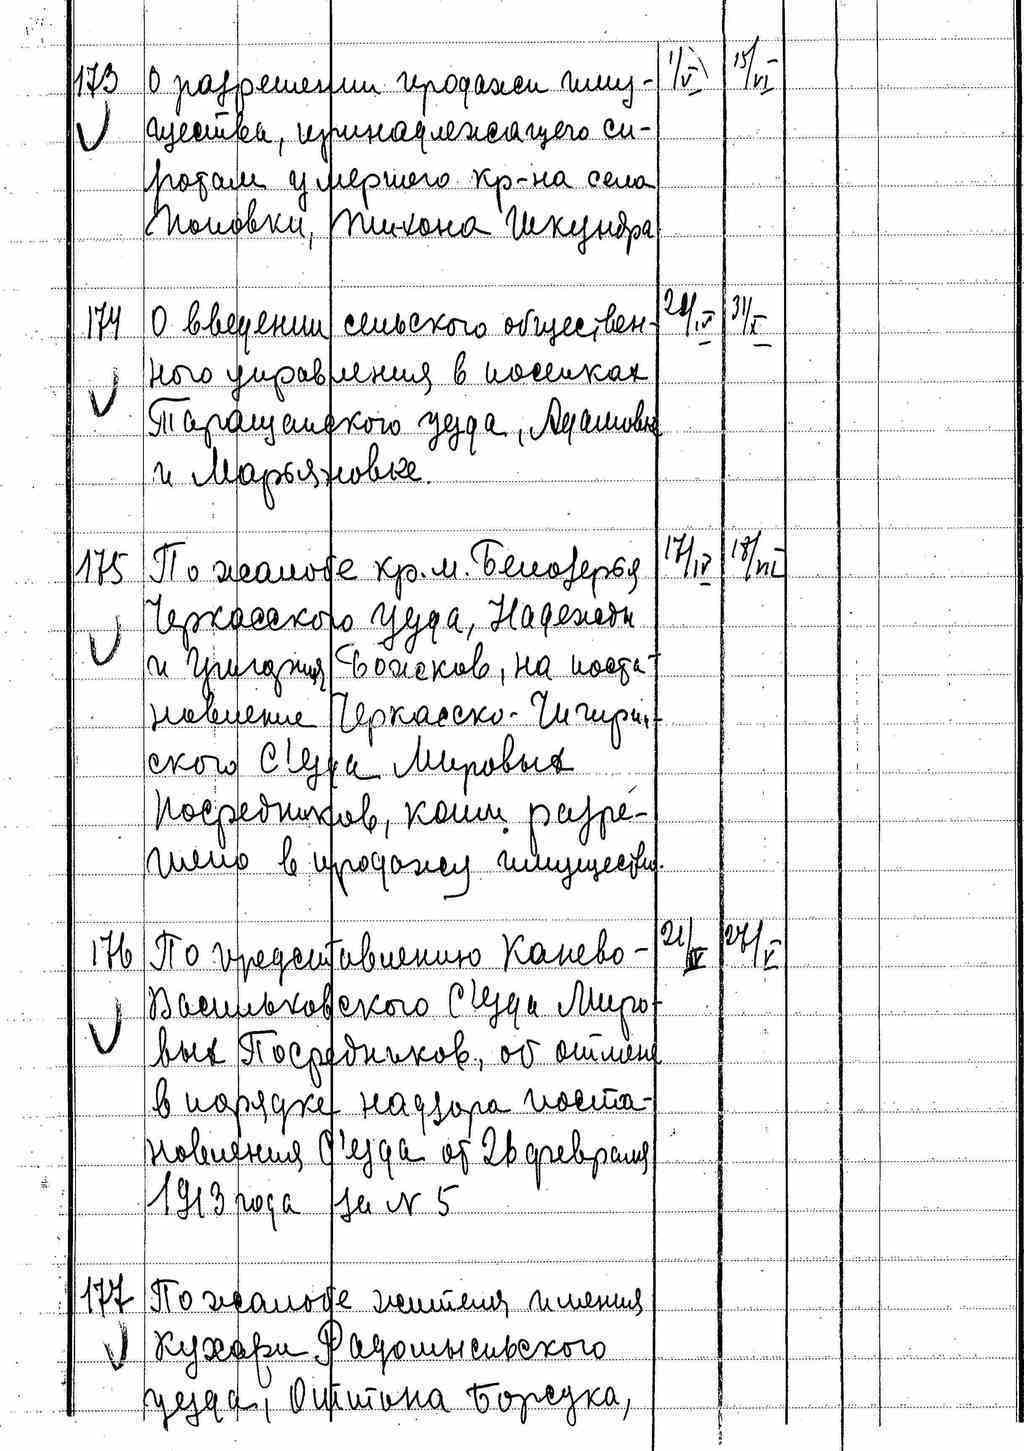 173 О разрешении продажи иму- 1/V 15/VI
щества, принадлежащего си-
ротам умершего кр-на села
Поповки, Тихона Шкундра
174 О введении сельского обществен- 21/IV 31/X
ного управления в поселках
Таращанского уезда, Адамовке
и Марьяновке.
175 По жалобе кр. м. Белозерья 17/IV 18/VII
Черкасского уезда, Надежды
и Божков, на поста-
новление Черкасско-Чигирин-
ского С'езда Мировых
Посредников, коим разре-
шено в продажу имущества.
176 По представлению Канево- 21/IV 27/V
Васильковского С'езда Миро-
вых Посредников, об отмене
в порядке надзора поста-
новления С'езда от 26 февраля
1913 года за N 5
177 По жалобе жителя имения
Кухари Радомысльского
уезда, Антона Борсука,